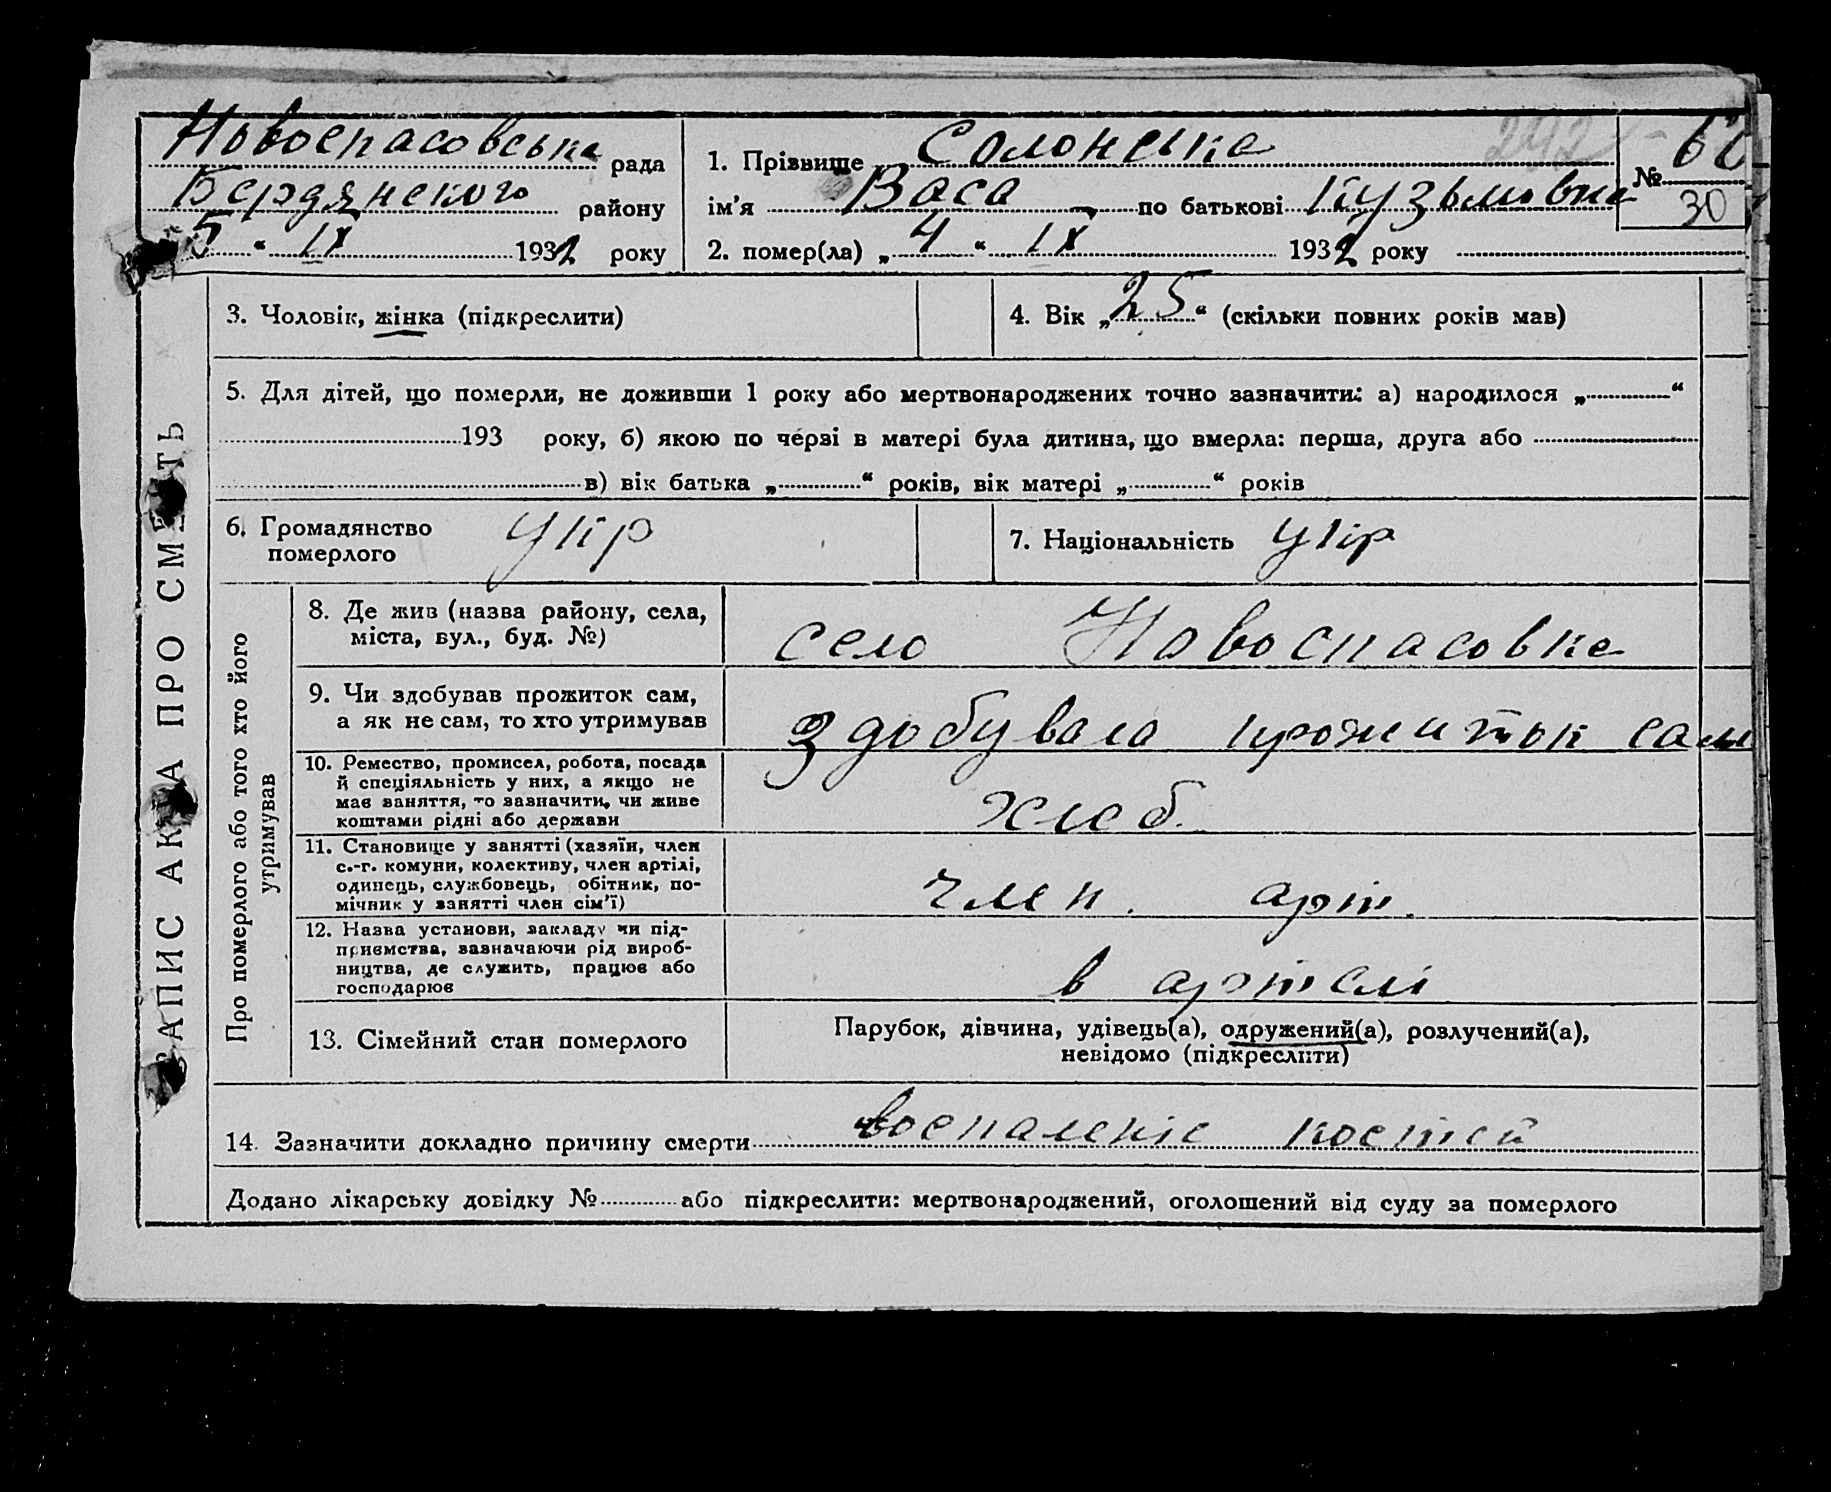 Новоспасовська рада
Бердянского району
5 “ IX 1932 року
1. Прізвище Солонська
ім’я Васа по батькові Кузьмовна
2. помер(ла) „ 4 “ IX 1932 року
292
№ 62
30
ЗАПИС АКТА ПРО СМЕРТЬ
3. Чоловік, жінка (підкреслити)
4. Вік „25“ (скільки повних років мав)
5. Для дітей, що померли, не доживши 1 року або мертвонароджених точно зазначити: а) народилося „ “
193 року, б) якою по черзі в матері була дитина, що вмерла: перша, друга або
в) вік батька „ “ років, вік матері „ “ років
6. Громадянство
померлого
укр
7. Національність укр
Про померлого або того хто його
утримував
8. Де жив (назва району, села,
міста, вул., буд. №)
село Новоспасовка
9. Чи здобував прожиток сам,
а як не сам, то хто утримував
здобувала прожиток сам
10. Ремество, промисел, робота, посада
й спеціяльність у них, а якщо не
має заняття, то зазначити, чи живе
коштами рідні або держави
хлеб.
11. Становище у занятті (хазяїн, член
с.-г. комуни, колективу, член артілі,
одинець, службовець, обітник, по-
мічник у занятті член сім’ї)
член. арт.
12. Назва установи, закладу чи під-
приємства, зазначаючи рід вироб-
ництва, де служить, працює або
господарює
в артелі
13. Сімейний стан померлого
Парубок, дівчина, удівець(а), одружений(а), розлучений(а),
невідомо (підкреслити)
14. Зазначити докладно причину смерти воспаленіе костей
Додано лікарську довідку № або підкреслити: мертвонароджений, оголошений від суду за померлого